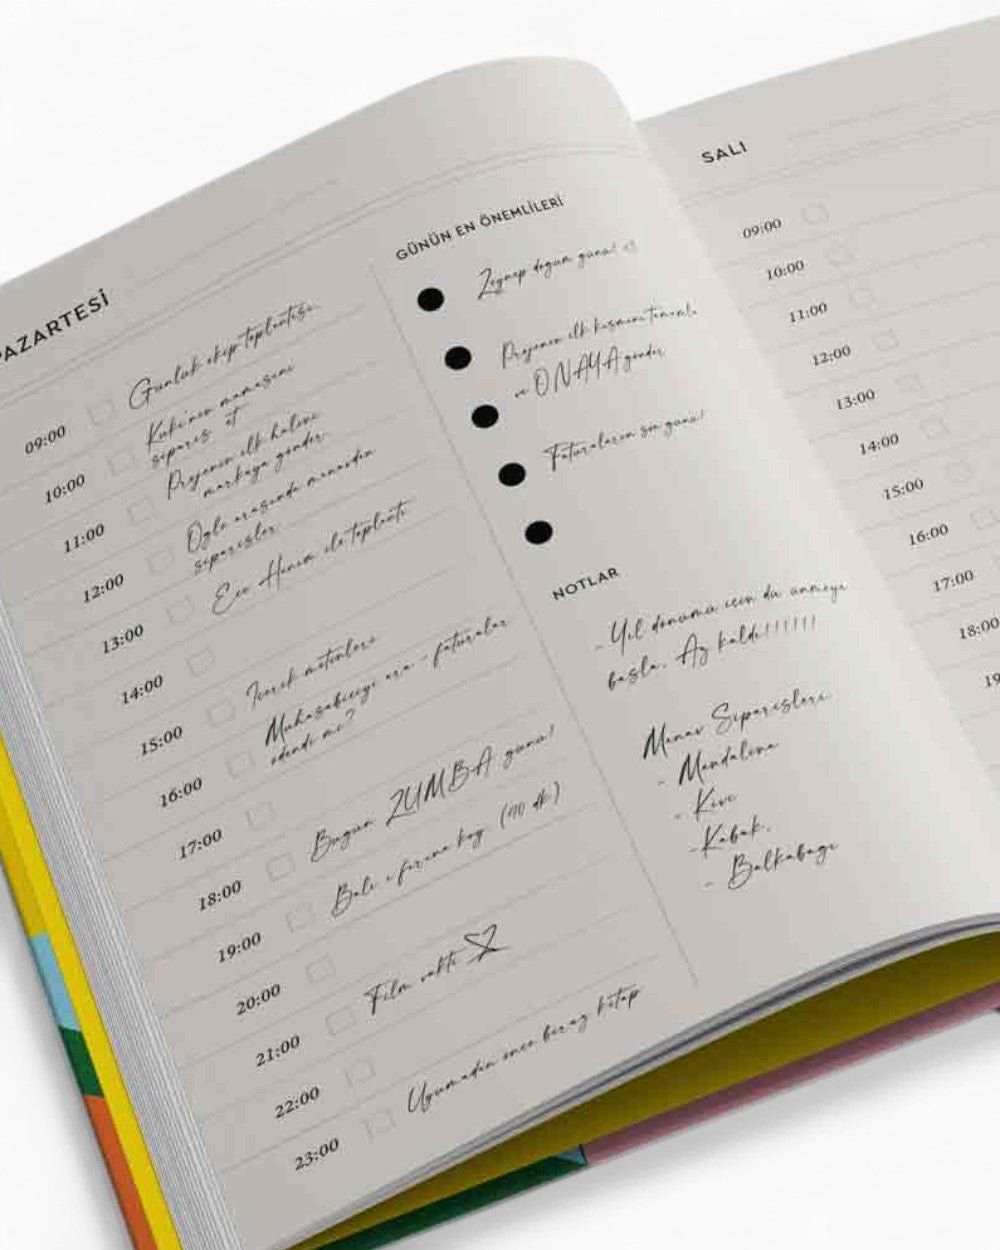 PAZARTESİ
09:00 Günlük ekip toplantısı
10:00 Kuki'nin mamasını
sipariş et
11:00 Projenin ilk halini
markaya gönder.
12:00 Öğle arasında manavdan
siparişler
13:00 Ece Hanım ile toplantı
14:00
15:00 İçerik metinleri
16:00 Muhasebeciyi ara - faturalar
ödendi mi?
17:00
18:00 Bugün ZUMBA günü!
19:00 Balı fırına koy (40 dk)
20:00
21:00 Film vakti
22:00
23:00 Uyumadan önce biraz kitap
GÜNÜN EN ÖNEMLİLERİ
Zeynep doğum günü!
Projenin ilk kısmını tamamla
ve ONAYA gönder
Faturaların son günü!
NOTLAR
- Yıl dönümü için düşünmeye
başla. Az kaldı!!!!!!
Manav Siparişleri
- Mandalina
- Kivi
- Kabak.
- Balkabağı
SALI
09:00
10:00
11:00
12:00
13:00
14:00
15:00
16:00
17:00
18:00
19